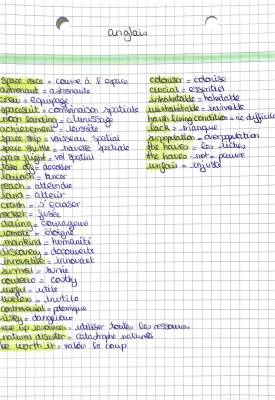 anglais
space race = course à l'espace
astronaut = astronaute
crew = équipage
spacesuit = combinaison spatiale
moon landing = alunissage
achievement = réussite
space ship = vaisseau spatial
space shuttle = navette spatiale
space flight = vol spatial
take off = décoller
launch = lancer
reach = atteindre
land = atterir
crash = s'écraser
rocket = fusée
daring = courageux
remote = éloigné
mankind = humanité
discovery = découverte
innovative = innovant
survival = survie
useful = utile
useless = inutile
controversial = polémique
risky = dangereux
use up resources = utiliser toutes les ressources
natural disaster = catastrophe naturelle
be worth it = valoir le coup
coloniser = colonise
crucial = essentiel
inhabitable = habitable
uninhabitable = invivable
harsh living condition = vie difficile
lack = manque
overpopulation = surpopulation
the haves = les riches
the haves-not = pauvre
unfair = injuste